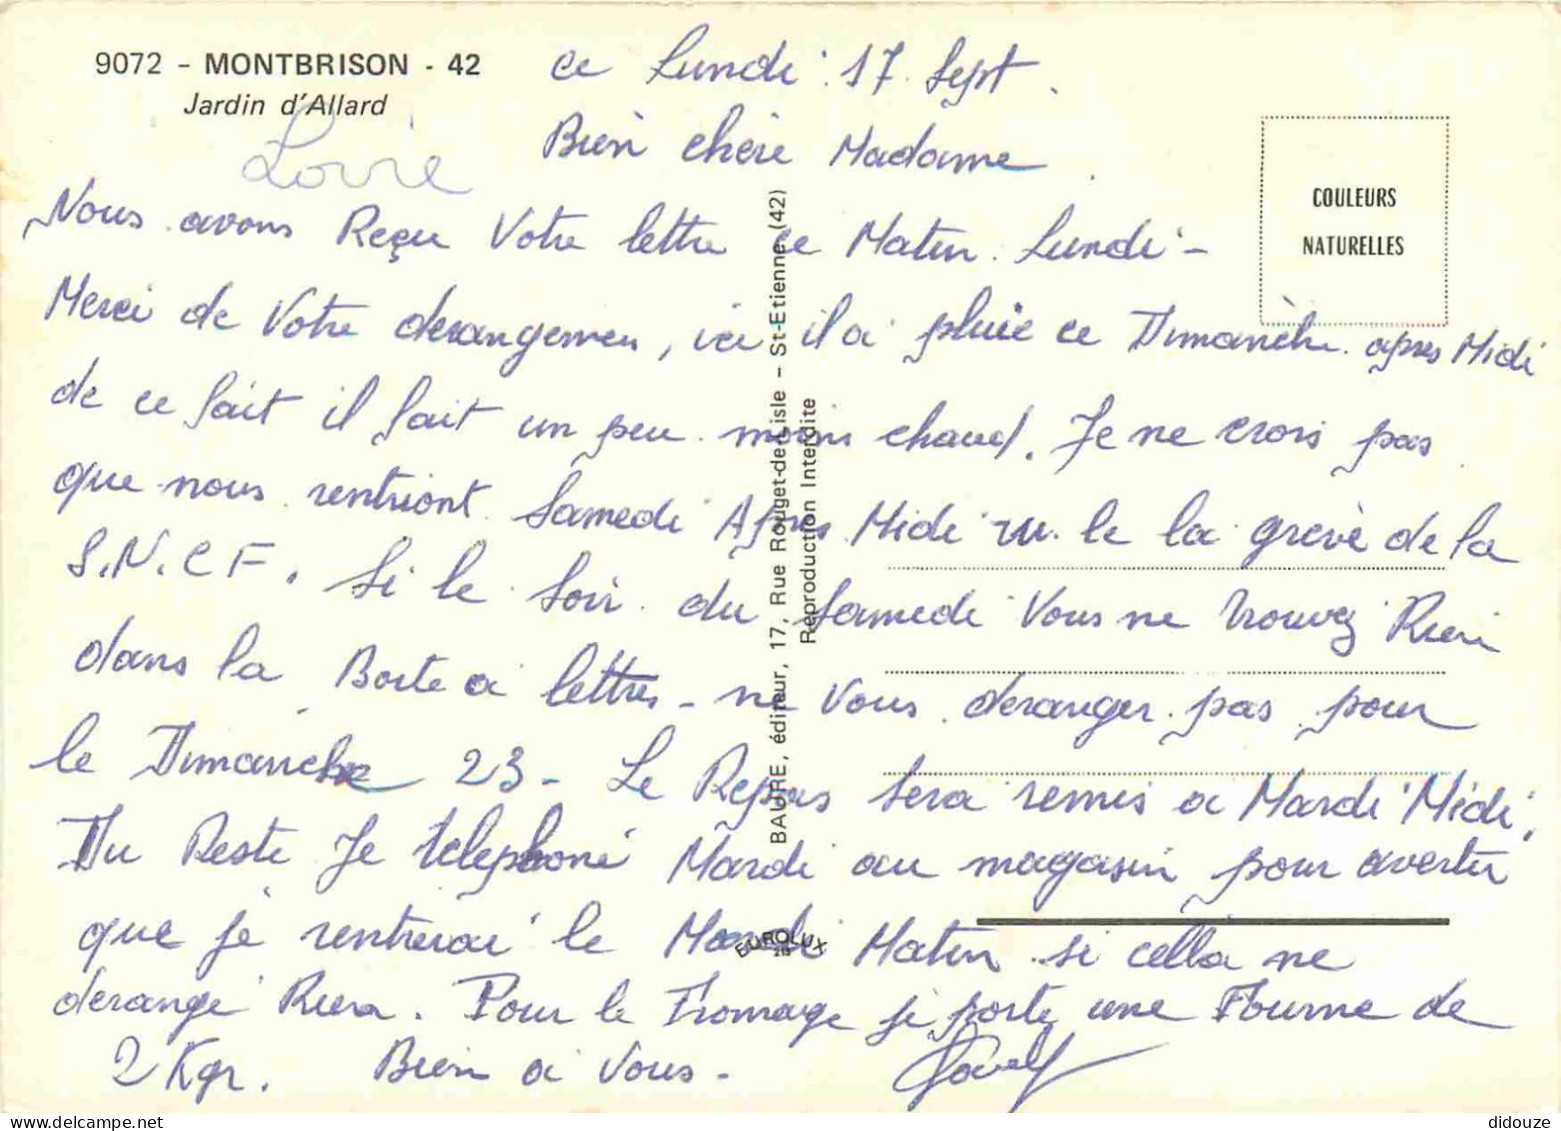 9072 - MONTBRISON - 42
Jardin d'Allard
Loire
ce Lundi 17 Sept.
Bien chère Madame
COULEURS
NATURELLES
Nous avons Reçu Votre lettre ce Matin Lundi -
Merci de Votre derangemen, ici il a pluie ce Dimanche apres Midi
de ce fait il fait un peu moins chaud. Je ne crois pas
que nous rentriont Samedi Après Midi vu le la grève de la
S.N.C F. Si le Soir du Samedi Vous ne trouvez Rien
dans la Boite a lettres - ne Vous deranger pas pour
le Dimanche 23 - Le Repas sera remis a Mardi Midi,
Du Reste Je telephone Mardi au magasin pour avertir
que je rentrerai le Mardi Matin si cella ne
derange Rien. Pour le Fromage je porte une Fourme de
2 Kgr. Bien a Vous -
BAURE, éditeur, 17, Rue Rouget-de-Lisle - St-Etienne (42)
Reproduction Interdite
EUROLUX
didouze